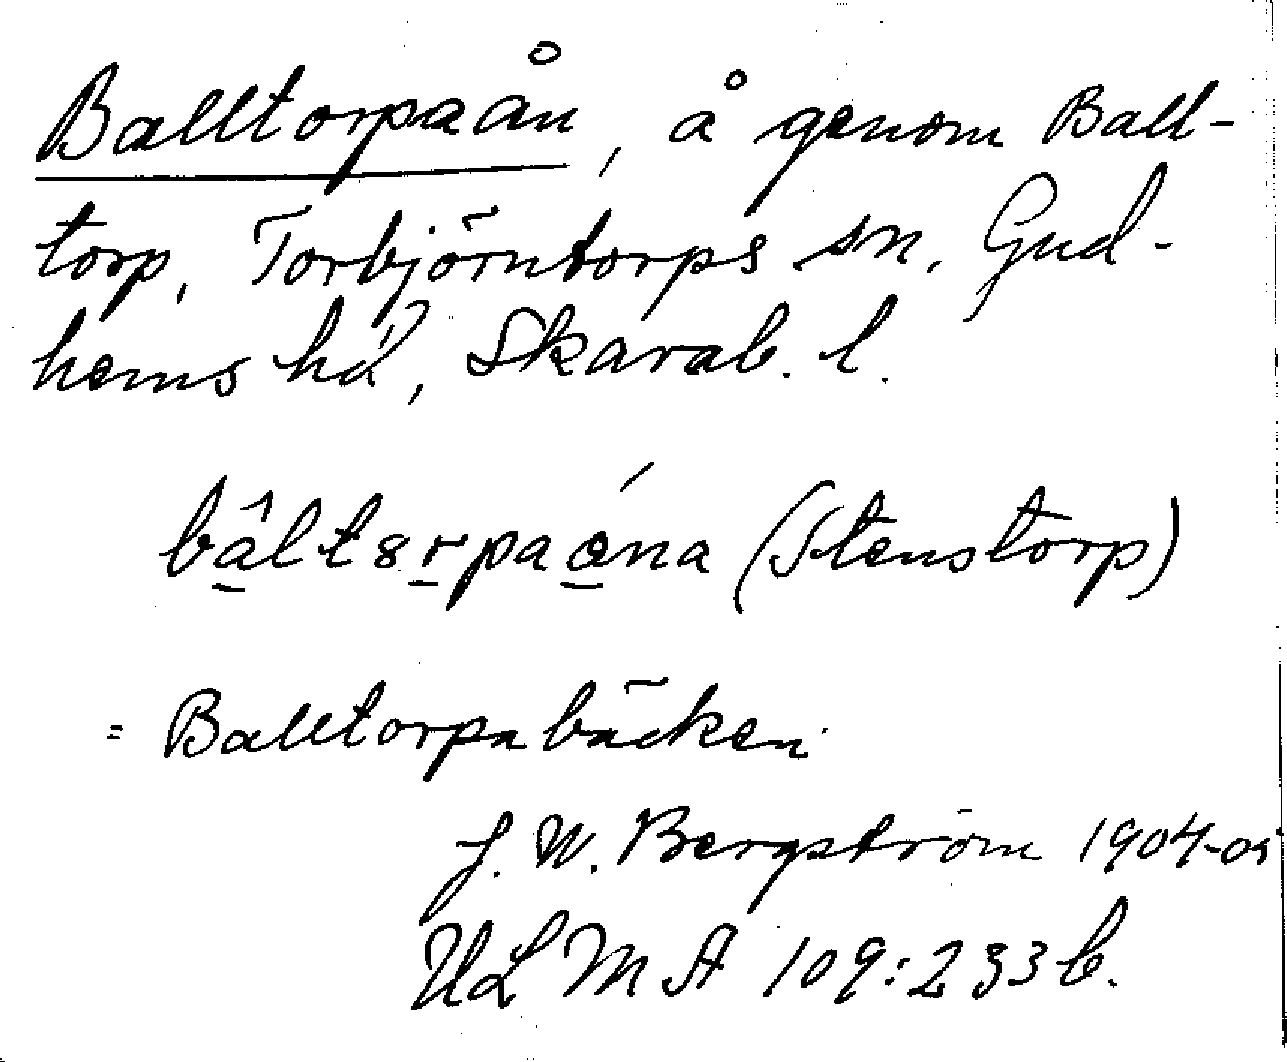 Balltorpaån, å genom Ball-
torp, Torbjörntorps sn, Gud-
hems hd, Skarab. l.
(Stenstorp)
= Balltorpabäcken
J. W. Bergström 1904-05
ULMA 109:233 b.